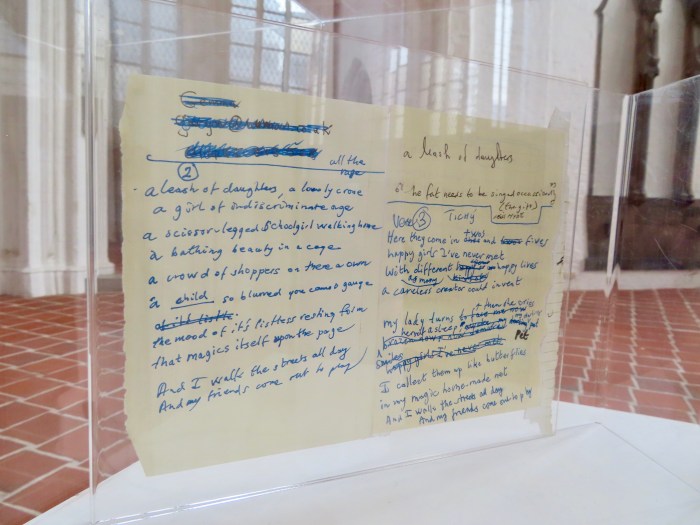 all the
rage
2
a leash of daughters, a lonely crone
a girl of indiscriminate age
a scissor-legged schoolgirl walking home
a bathing beauty in a cage
a crowd of shoppers on there own
a child so blurred you cannot gauge
the mood of it's listless resting form
that magics itself upon the page
And I walk the streets all day
And my friends come out to play
a leash of daughters
he fat needs to be singed occasionally
Verse 3 Ticky
Here they come in twos and fives
happy girls I've never met
With different happy lives
as many
a careless creator could invent
my lady turns to then she cries
herself asleep
Smiles Pet
I collect them up like butterflies
in my magic home-made net
And I walk the streets all day
And my friends come out to play